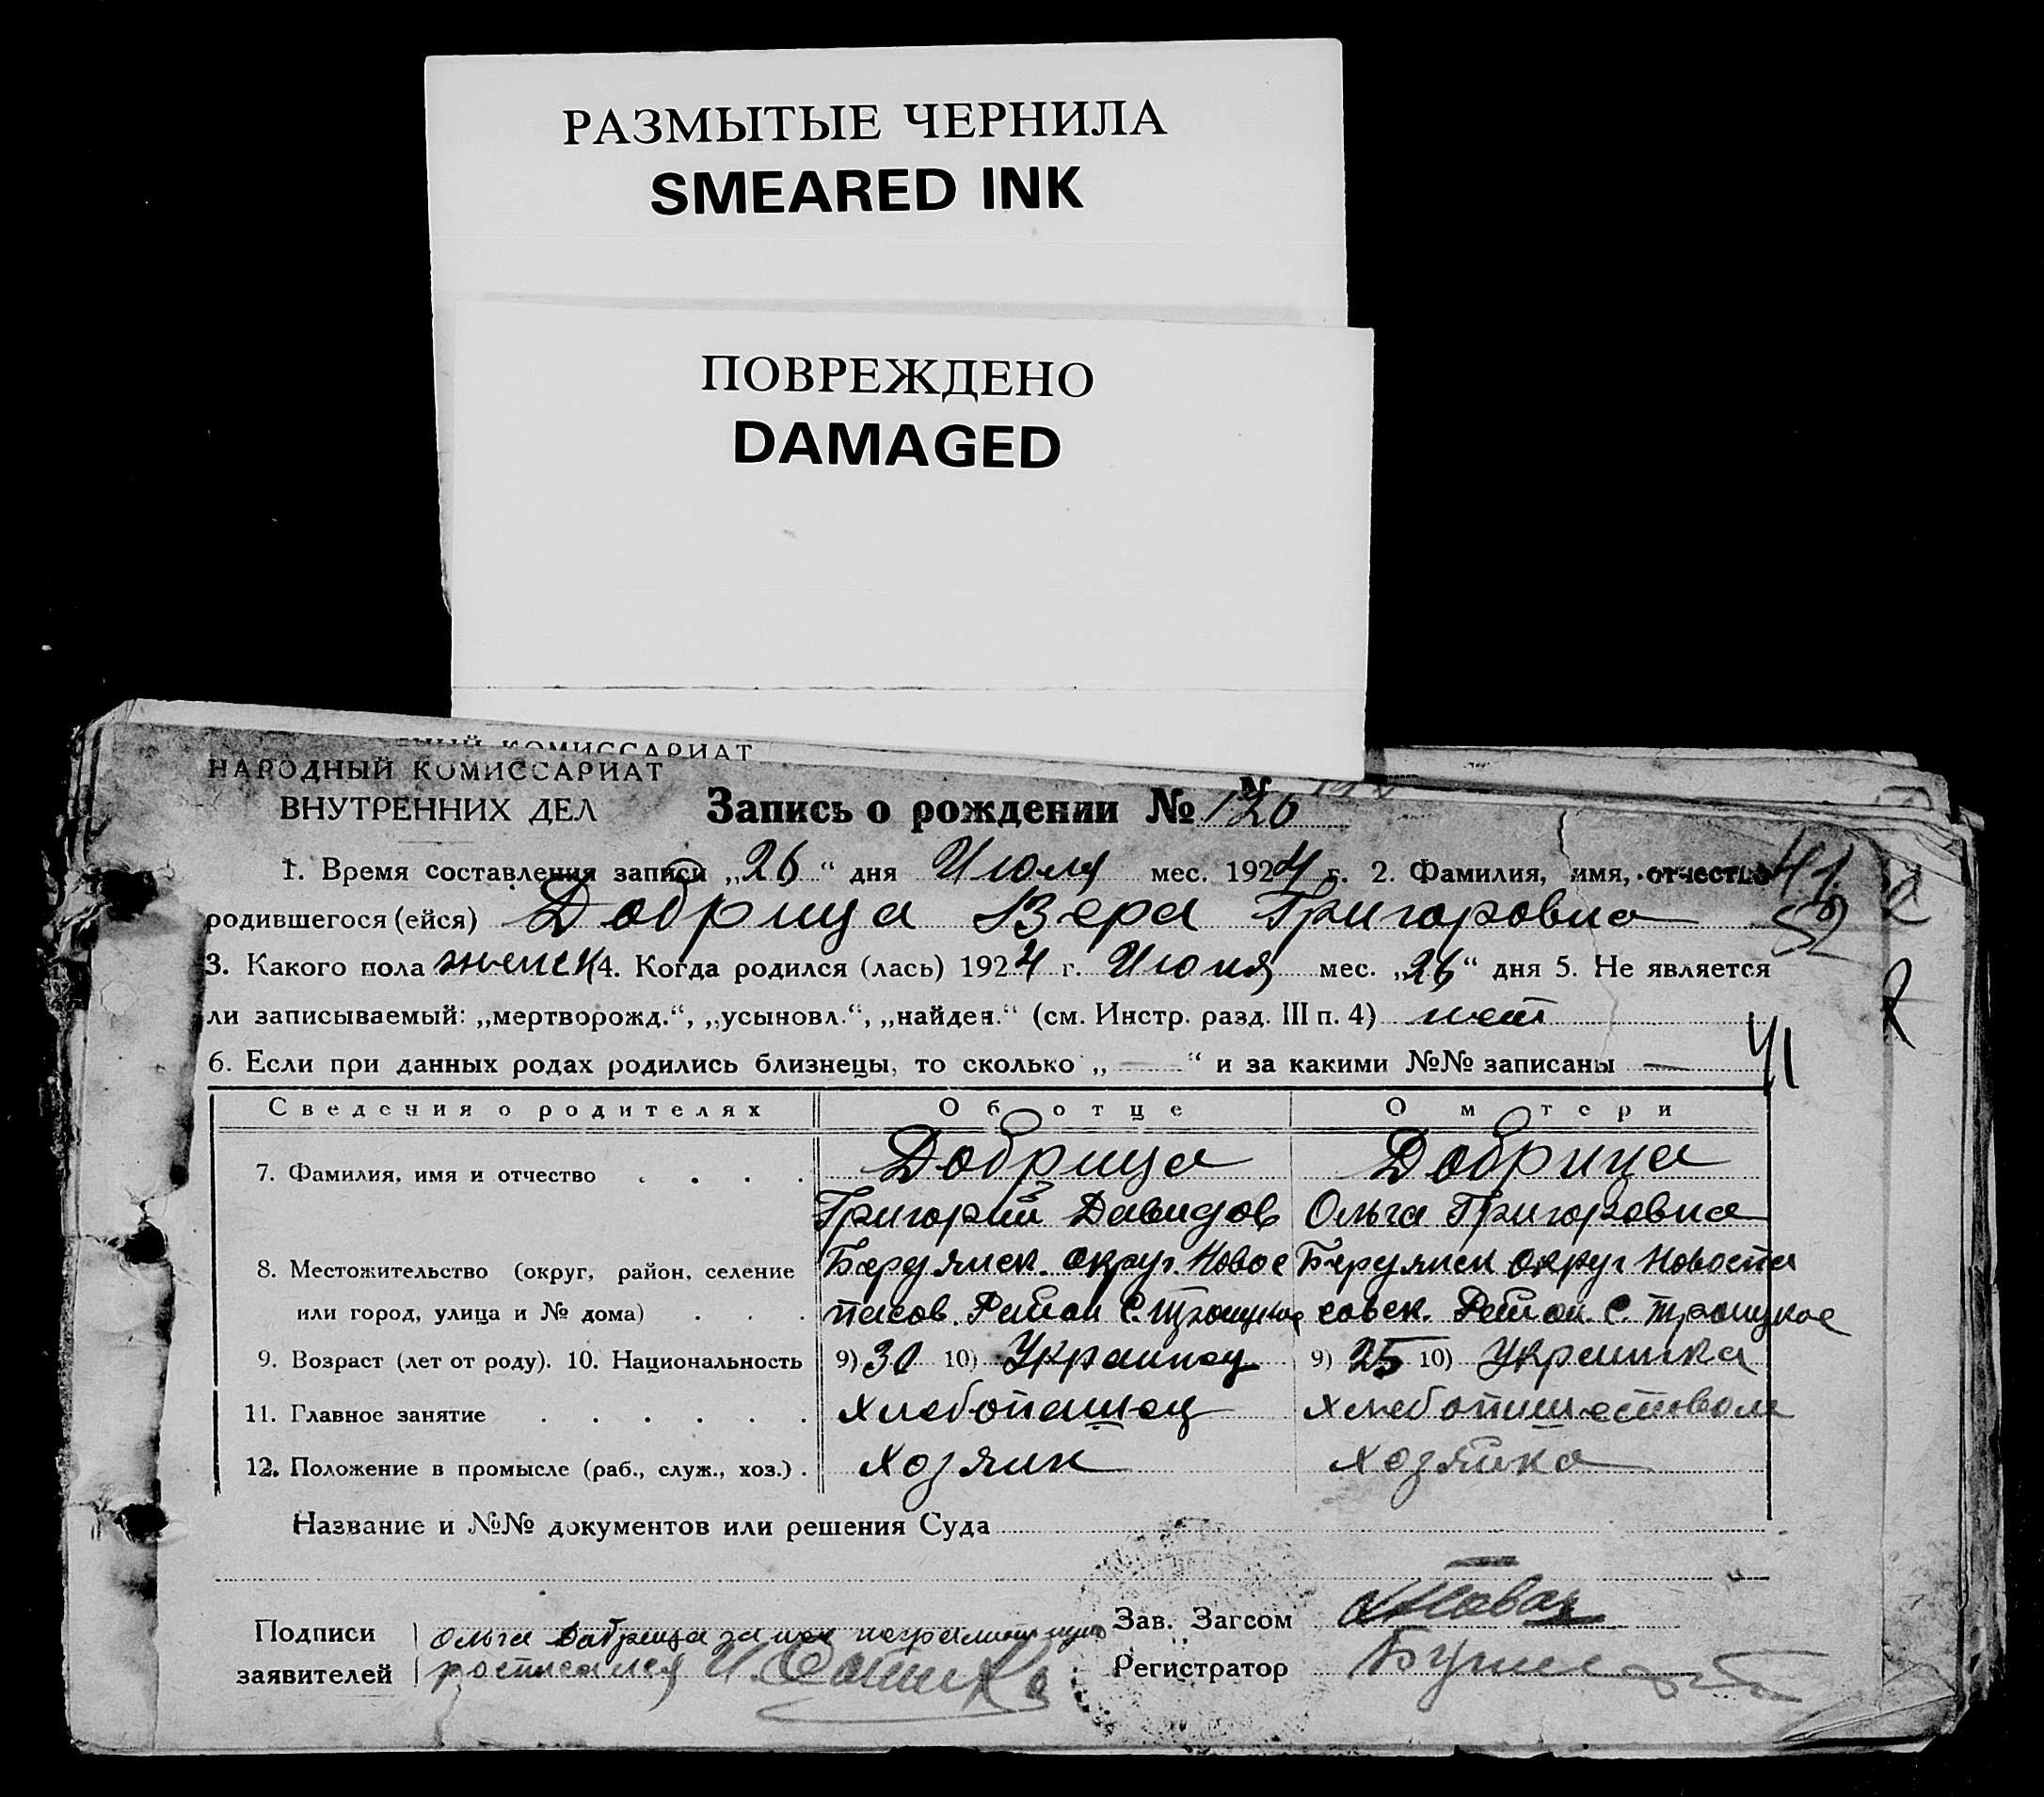 РАЗМЫТЫЕ ЧЕРНИЛА
SMEARED INK
ПОВРЕЖДЕНО
DAMAGED
КОМИССАРИАТ
НАРОДНЫЙ КОМИССАРИАТ
ВНУТРЕННИХ ДЕЛ
Запись о рождении № 126
1. Время составления записи „26“ дня Июля мес. 1924 г. 2. Фамилия, имя, отчество
родившегося (ейся) Добрица Вера Григоровна
3. Какого пола женск 4. Когда родился (лась) 1924 г. Июня мес. „26“ дня 5. Не является
ли записываемый: „мертворожд.“, „усыновл.“, „найден.“ (см. Инстр. разд. III п. 4) нет
6. Если при данных родах родились близнецы, то сколько „ — “ и за какими №№ записаны —
41
Сведения о родителях Об отце О м тери
7. Фамилия, имя и отчество . . . . Добрица Добрица
Григорий Давидов Ольга Григоровна
8. Местожительство (округ, район, селение Бердянск. округ. Новос Бердянск округ Новоспа
или город, улица и № дома) . . . пасов. Район С. Троицкое совск. Район. С. Троицкое
9. Возраст (лет от роду). 10. Национальность 9) 30 10) Украинец 9) 25 10) Украинка
11. Главное занятие . . . . . . Хлебопашец Хлебопашеством
12. Положение в промысле (раб., служ., хоз.) . Хозяин Хозяйка
Название и №№ документов или решения Суда
Подписи Ольга Добрица за нее неграмотную Зав. Загсом
заявителей росписался И. Регистратор